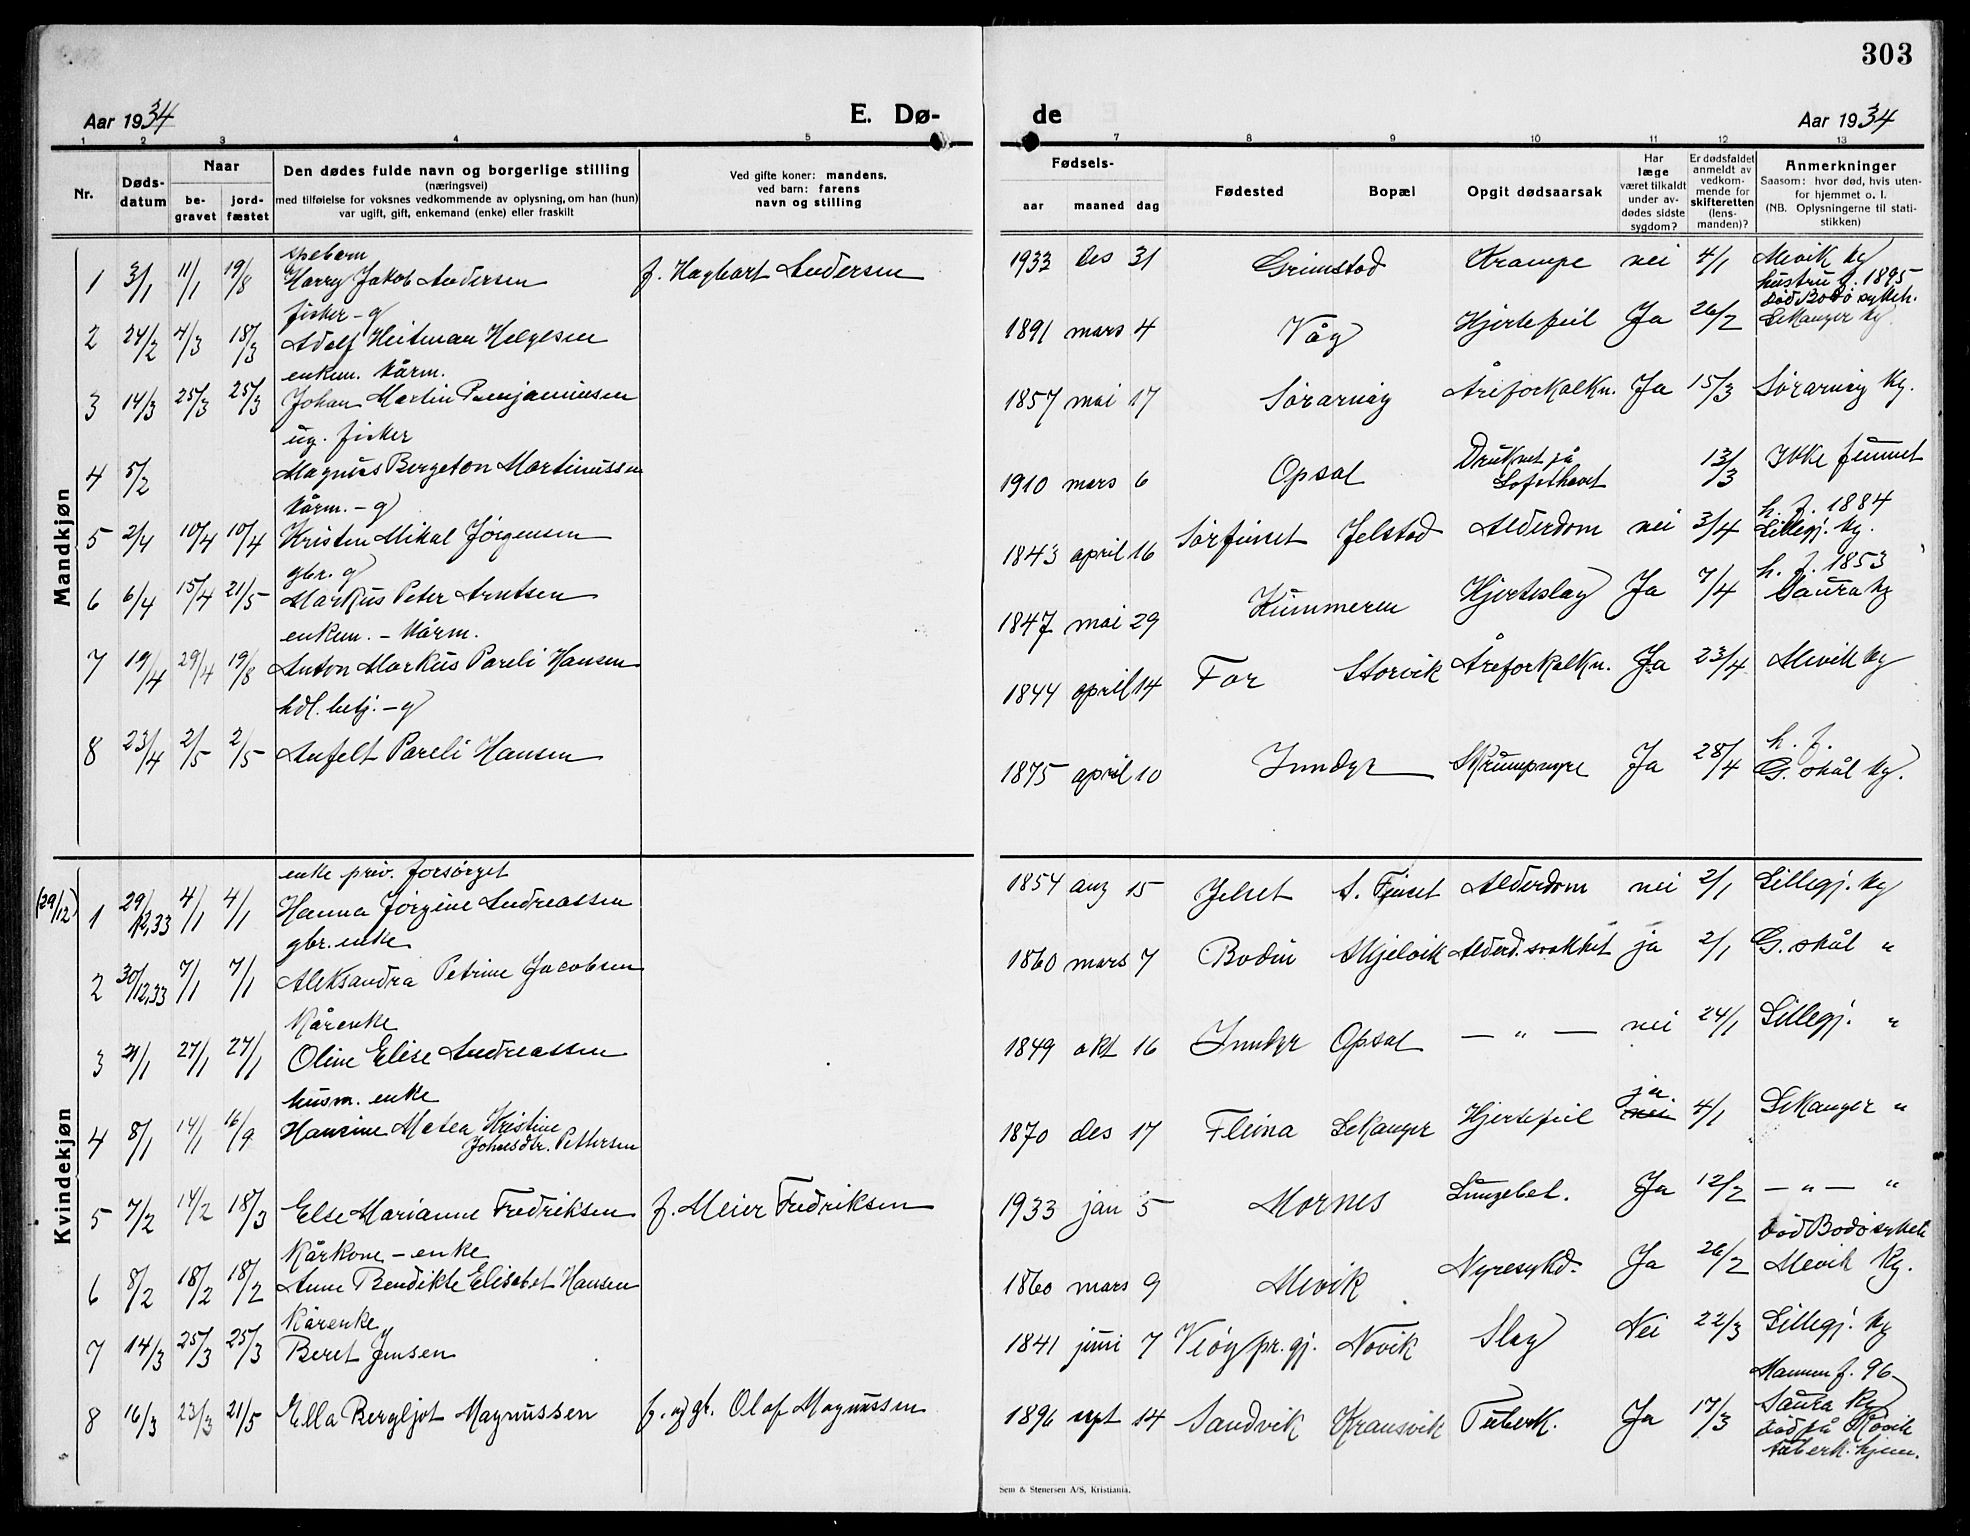 303
Aar 1934 E. Dø- de Aar 1934
1 2 3 4 5 7 8 9 10 11 12 13
Nr.
Døds-
datum
Naar
be-
gravet
jord-
fæstet
Den dødes fulde navn og borgerlige stilling
(næringsvei)
med tilføielse for voksnes vedkommende av oplysning, om han (hun)
var ugift, gift, enkemand (enke) eller fraskilt
Ved gifte koner: mandens,
ved barn: farens
navn og stilling
Fødsels-
aar maaned dag
Fødested
Bopæl
Opgit dødsaarsak
Har
læge
været tilkaldt
under av-
dødes sidste
sygdom?
Er dødsfaldet
anmeldt av
vedkom-
mende for
skifteretten
(lens-
manden)?
Anmerkninger
Saasom: hvor død, hvis uten-
for hjemmet o. l.
(NB. Oplysningerne til stati-
stikken)
Mandkjøn
speborn
1 3/1 11/1 19/8 Harry Jakob Andersen f. Hagbart Andersen 1933 des 31 Grimstad Krampe nei 4/1 Mevik kg
fisker - g hustru f. 1895
død Bodø sykeh.
2 24/2 4/3 18/3 Adolf Heitman Helgesen 1891 mars 4 Våg Hjertefeil Ja 26/2 Lekanger kg.
enkem. kårm.
3 14/3 25/3 25/3 Johan Martin Benjaminsen 1857 mai 17 Sørarnøy Åreforkalkn. Ja 15/3 Sørarnøy kg.
ug. fisker
4 5/2 Magnus Bergeton Martinussen 1910 mars 6 Opsal Druknet på Lofothavet 13/3 Ikke funnet
kårm. - g h. f. 1884
5 2/4 10/4 10/4 Kristen Mikal Jørgensen 1843 april 16 Sørfinset Jelstad Alderdom nei 3/4 Lillegj. kg.
gbr. g h. f. 1853
6 6/4 15/4 21/5 Markus Peter Arntsen 1847 mai 29 Kummeren Hjerteslag Ja 7/4 Saura kg
enkem. - kårm.
7 19/4 29/4 19/8 Anton Markus Pareli Hansen 1844 april 14 For Storvik Åreforkalkn. Ja 23/4 Mevik kg
hdl. betj. - g h. f.
8 23/4 2/5 2/5 Anfelt Pareli Hansen 1875 april 10 Inndyr Skrumpnyre Ja 28/4 G.skål kg.
Kvindekjøn
enke priv. forsørget
(29/12) 1 29/12,33 4/1 4/1 Hanna Jørgine Andreassen 1854 aug 15 Jelset S. Finset Alderdom nei 2/1 Lillegj. kg
gbr. enke
2 30/12,33 7/1 7/1 Aleksandra Petrine Jacobsen 1860 mars 7 Bodin Skjelvik Alderd.svakhet ja 2/1 G.skål "
Kårenke
3 21/1 27/1 27/1 Oline Elise Andreassen 1849 okt 16 Inndyr Opsal — " — nei 24/1 Lillegj. "
husm. enke ja
4 8/1 14/1 16/9 Hansine Matea Kristine Johnsdtr. Pettersen 1870 des 17 Fleina Lekanger Hjertefeil nei 4/1 Lekanger "
5 7/2 14/2 18/3 Else Marianne Fredriksen f. Meier Fredriksen 1933 jan 5 Mornes Lungebet. Ja 12/2 — " — "
Kårkone - enke død Bodø sykeh
6 8/2 18/2 18/2 Anne Bendikte Elisabet Hansen 1860 mars 9 Mevik Nyresykd. Ja 26/2 Mevik kg.
Kårenke
7 14/3 25/3 25/3 Beret Jensen 1841 juni 7 Vegøy pr. gj. Novik Slag Nei 22/3 Lillegj. kg
Mannen f. 96
8 16/3 23/3 21/5 Ella Bergljot Magnussen f. og gb. Olaf Magnussen 1896 sept 14 Sandvik Kransvik Tuberk. Ja 17/3 Saura kg
død på Røvik
tuberk. hjem.
Sem & Stenersen A/S, Kristiania.